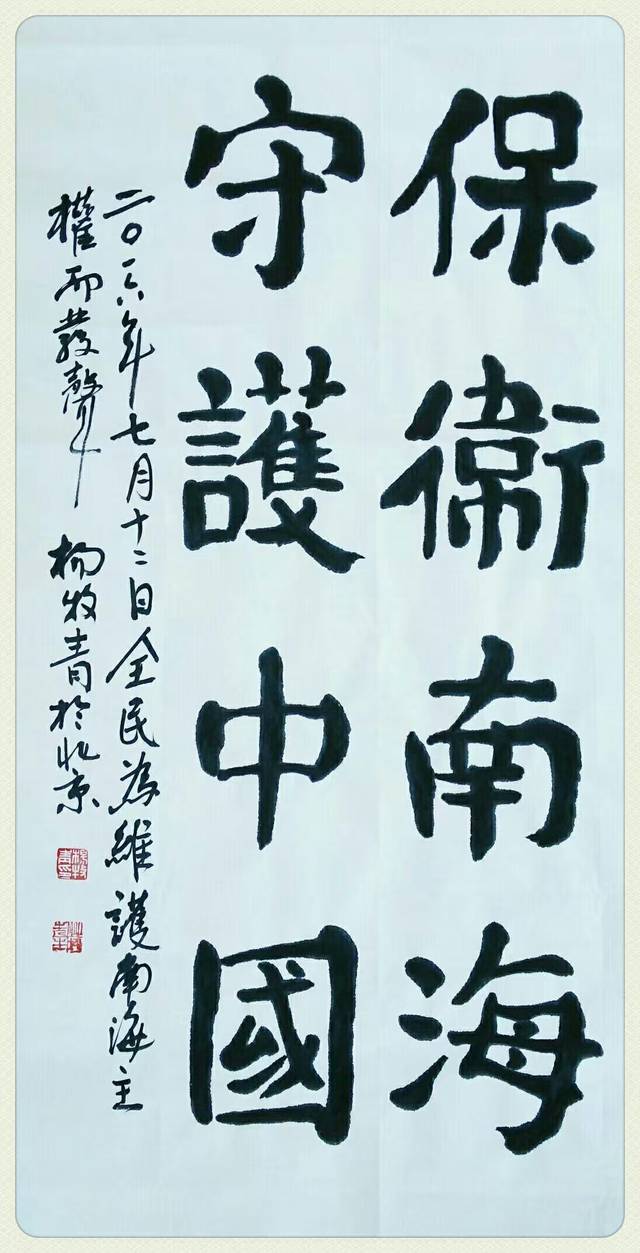 保衛南海
守護中國
二〇一六年七月十二日全民為維護南海主
權而發聲
楊牧青於北京